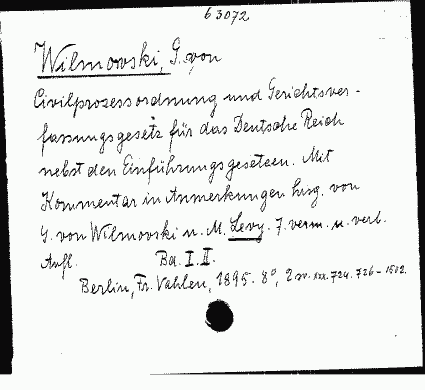 63072
Wilmowski, G. von
Civilprozessordnung und Gerichtsver-
fassungsgesetz für das Deutsche Reich
nebst den Einführungsgesetzen. Mit
Kommentar in Anmerkungen hrsg. von
G. von Wilmowski u. M. Levy. 7. verm. u. verb.
Aufl. Bd. I. II.
Berlin, Fr. Vahlen, 1895. 8°, 2 724. 726-1502.